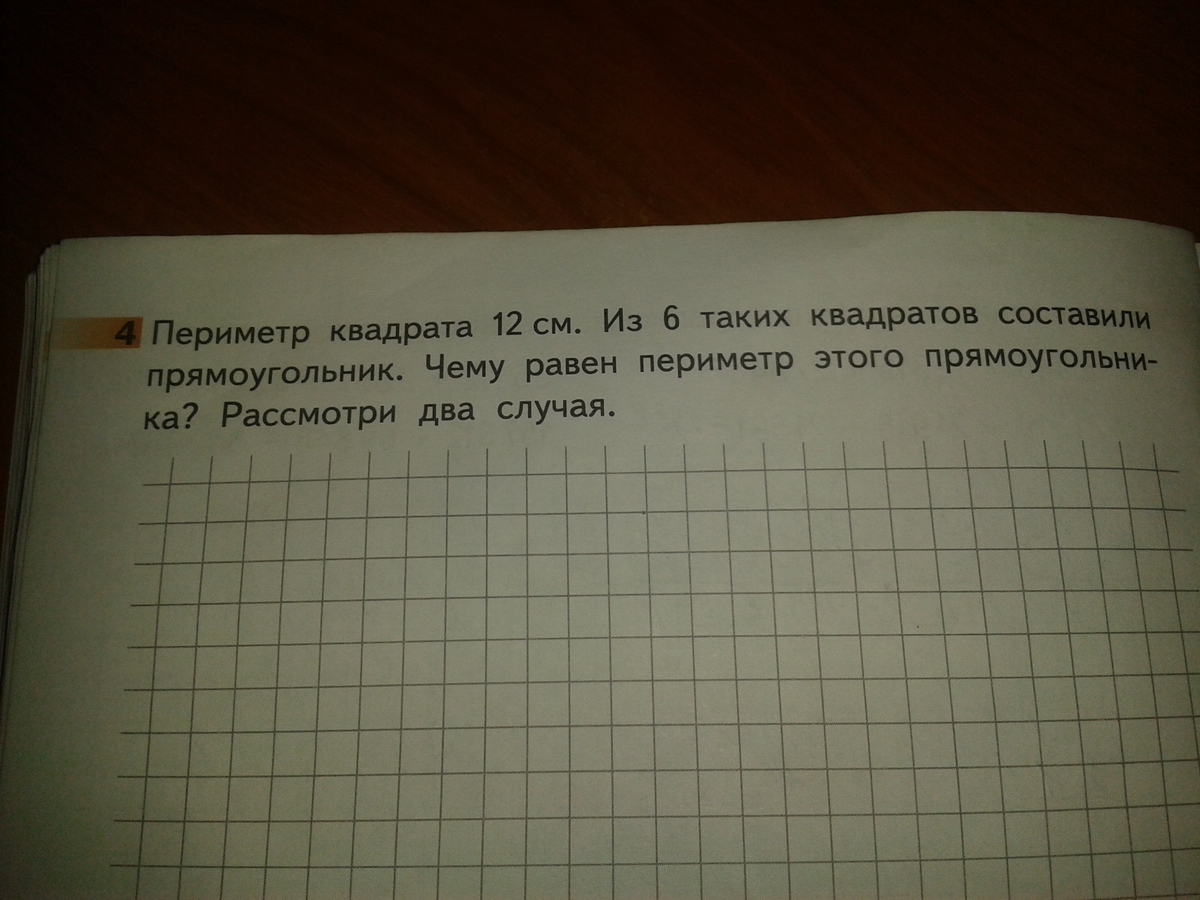 4 Периметр квадрата 12 см. Из 6 таких квадратов составили
прямоугольник. Чему равен периметр этого прямоугольни-
ка? Рассмотри два случая.